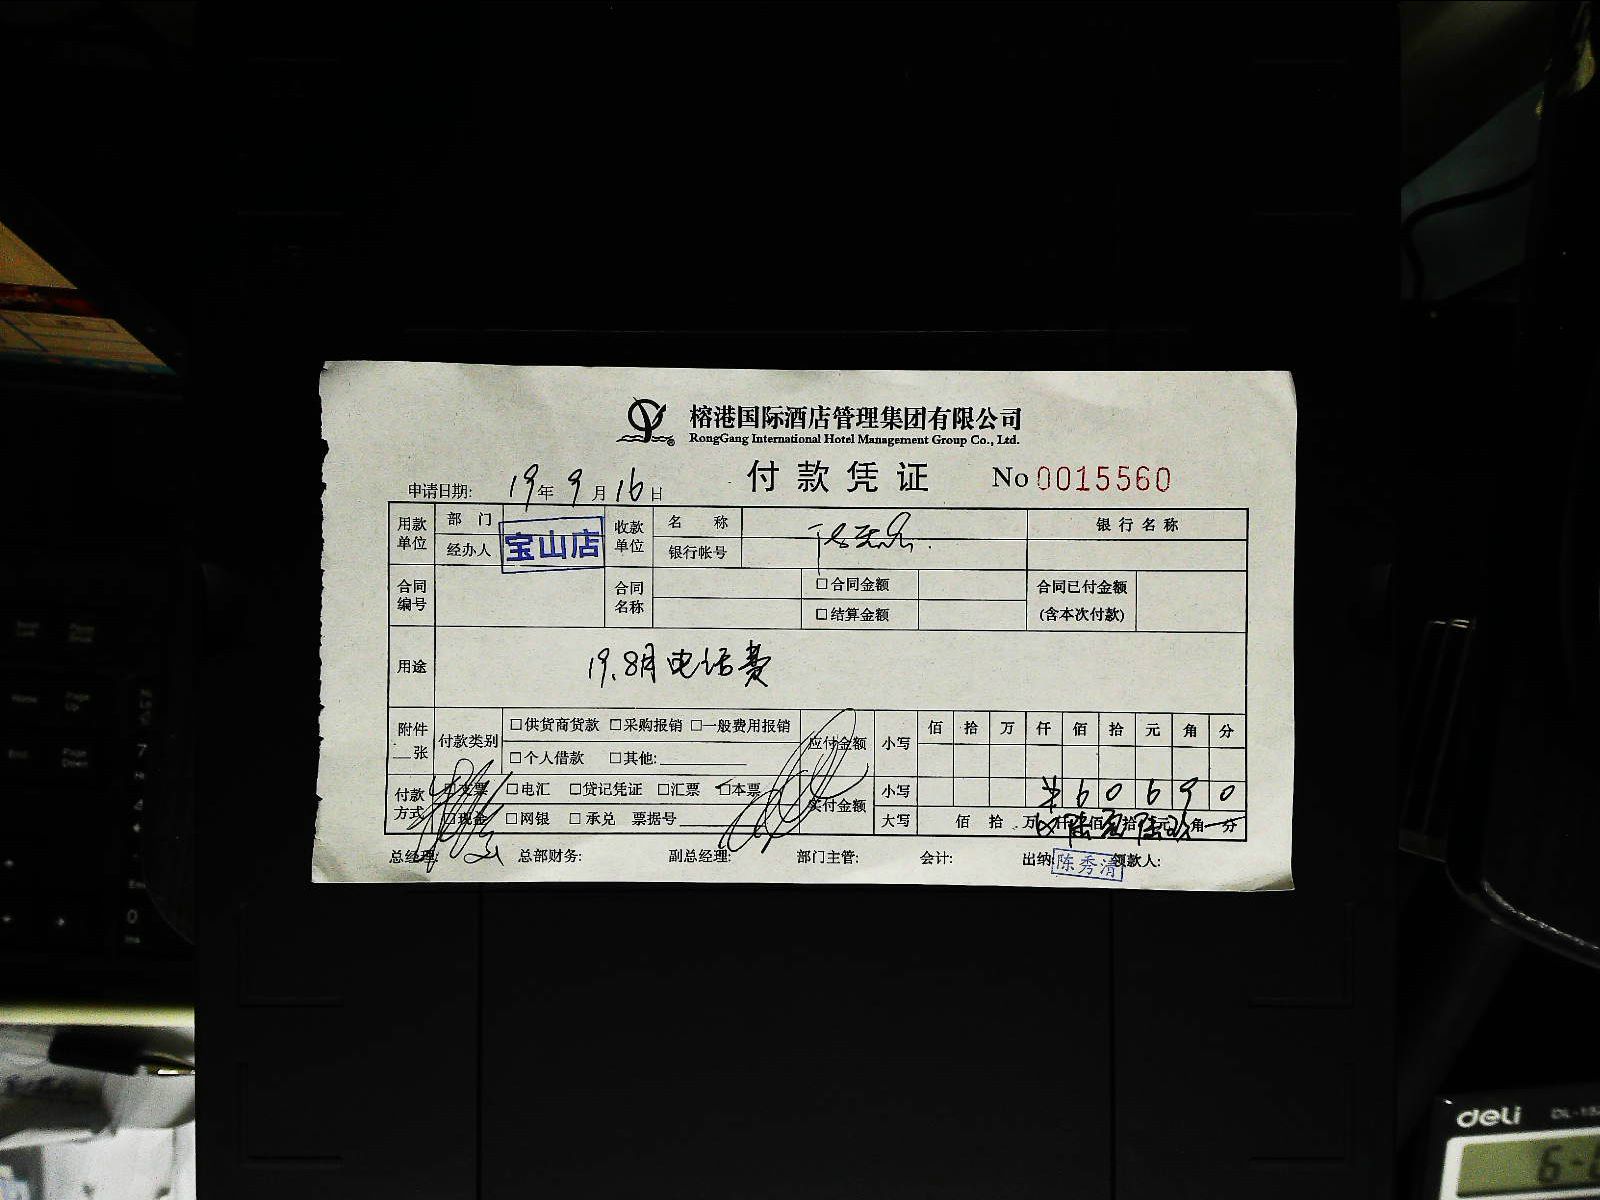 榕港国际酒店管理集团有限公司
RongGang International Hotel Management Group Co., Ltd.
付款凭证 No 0015560
申请日期: 19年 9月 16日
用款单位 部门 收款单位 名称 银行名称
经办人 宝山店 银行帐号
合同编号 合同名称 □合同金额 合同已付金额
□结算金额 (含本次付款)
用途 19.8月电话费
附件 张 付款类别 □供货商货款 □采购报销 □一般费用报销 应付金额 小写 佰 拾 万 仟 佰 拾 元 角 分
□个人借款 □其他:
付款方式 □支票 □电汇 □贷记凭证 □汇票 □本票 实付金额 小写 ¥ 6 0 6 9 0
□现金 □网银 □承兑 票据号 大写 佰 拾 万 仟 佰 拾 元 角 分
总经理: 总部财务: 副总经理: 部门主管: 会计: 出纳: 陈秀清 领款人:
deli